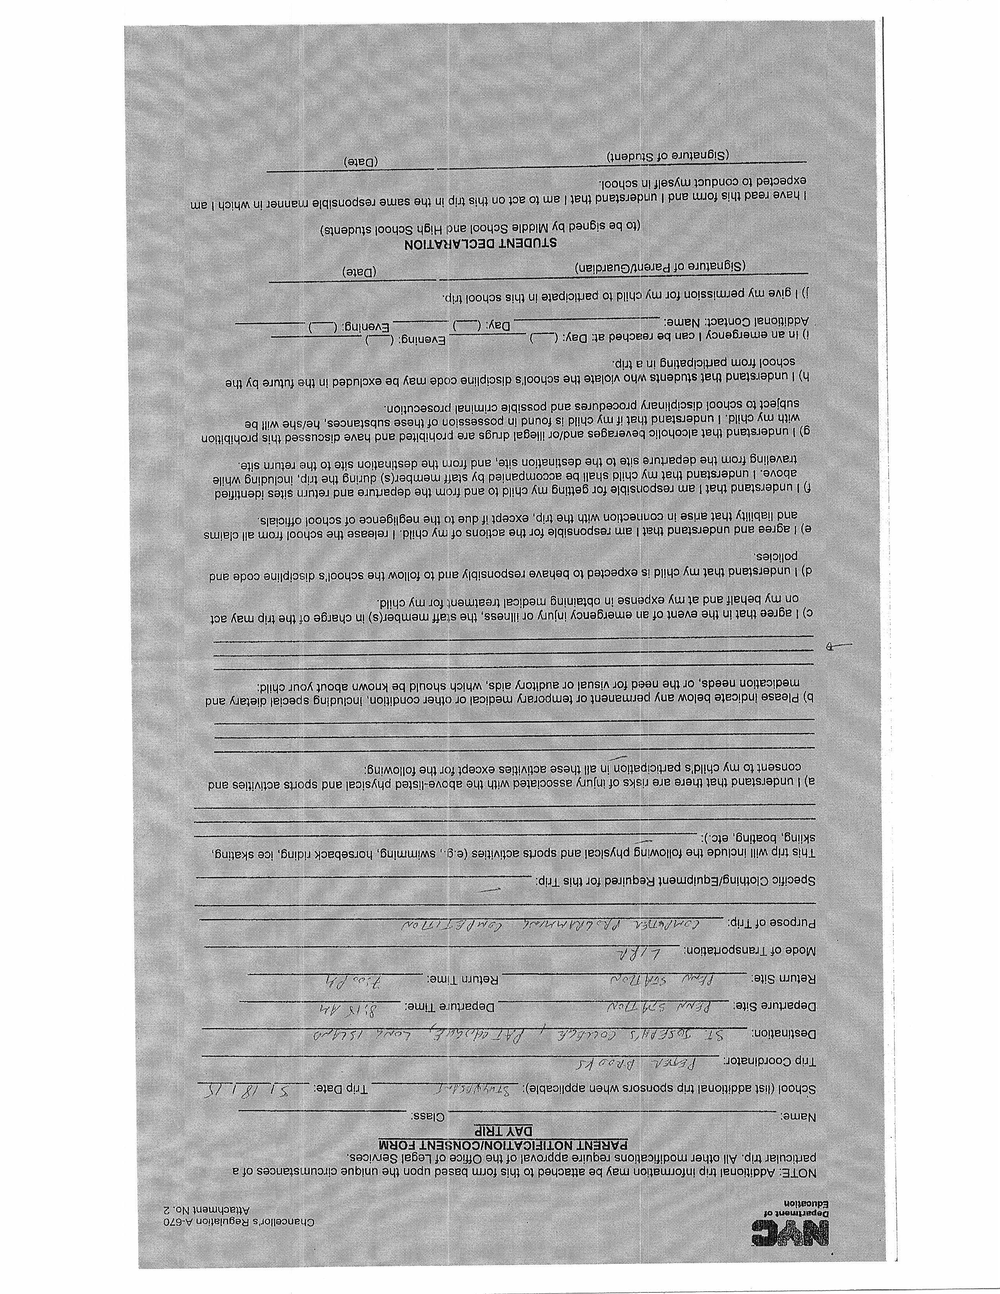 NYC
Department of
Education
Chancellor's Regulation A-670
Attachment No. 2
NOTE: Additional trip information may be attached to this form based upon the unique circumstances of a
particular trip. All other modifications require approval of the Office of Legal Services.
PARENT NOTIFICATION/CONSENT FORM
DAY TRIP
Name: Class:
School (list additional trip sponsors when applicable): STUYVESANT Trip Date: 3/18/15
Trip Coordinator: PETER BROOKS
Destination: ST. JOSEPH'S COLLEGE, PATCHOGUE, LONG ISLAND
Departure Site: PENN STATION Departure Time: 8:15 AM
Return Site: PENN STATION Return Time: 7:00 PM
Mode of Transportation: LIRR
Purpose of Trip: COMPUTER PROGRAMMING COMPETITION
Specific Clothing/Equipment Required for this Trip: —
This trip will include the following physical and sports activities (e.g., swimming, horseback riding, ice skating,
skiing, boating, etc.): —
a) I understand that there are risks of injury associated with the above-listed physical and sports activities and
consent to my child's participation in all these activities except for the following:
b) Please indicate below any permanent or temporary medical or other condition, including special dietary and
medication needs, or the need for visual or auditory aids, which should be known about your child:
c) I agree that in the event of an emergency injury or illness, the staff member(s) in charge of the trip may act
on my behalf and at my expense in obtaining medical treatment for my child.
d) I understand that my child is expected to behave responsibly and to follow the school's discipline code and
policies.
e) I agree and understand that I am responsible for the actions of my child. I release the school from all claims
and liability that arise in connection with the trip, except if due to the negligence of school officials
f) I understand that I am responsible for getting my child to and from the departure and return sites identified
above. I understand that my child shall be accompanied by staff member(s) during the trip, including while
traveling from the departure site to the destination site, and from the destination site to the return site.
g) I understand that alcoholic beverages and/or illegal drugs are prohibited and have discussed this prohibition
with my child. I understand that if my child is found in possession of these substances, he/she will be
subject to school disciplinary procedures and possible criminal prosecution.
h) I understand that students who violate the school's discipline code may be excluded in the future by the
school from participating in a trip.
i) In an emergency I can be reached at: Day: (___) Evening: (___)
Additional Contact: Name: Day: (___) Evening: (___)
j) I give my permission for my child to participate in this school trip.
(Signature of Parent/Guardian) (Date)
STUDENT DECLARATION
(to be signed by Middle School and High School students)
I have read this form and I understand that I am to act on this trip in the same responsible manner in which I am
expected to conduct myself in school.
(Signature of Student) (Date)